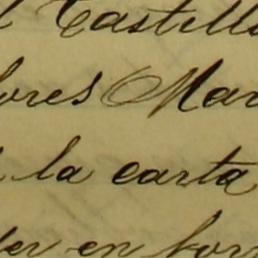 l Castill
lores Mar
la carta
der en form